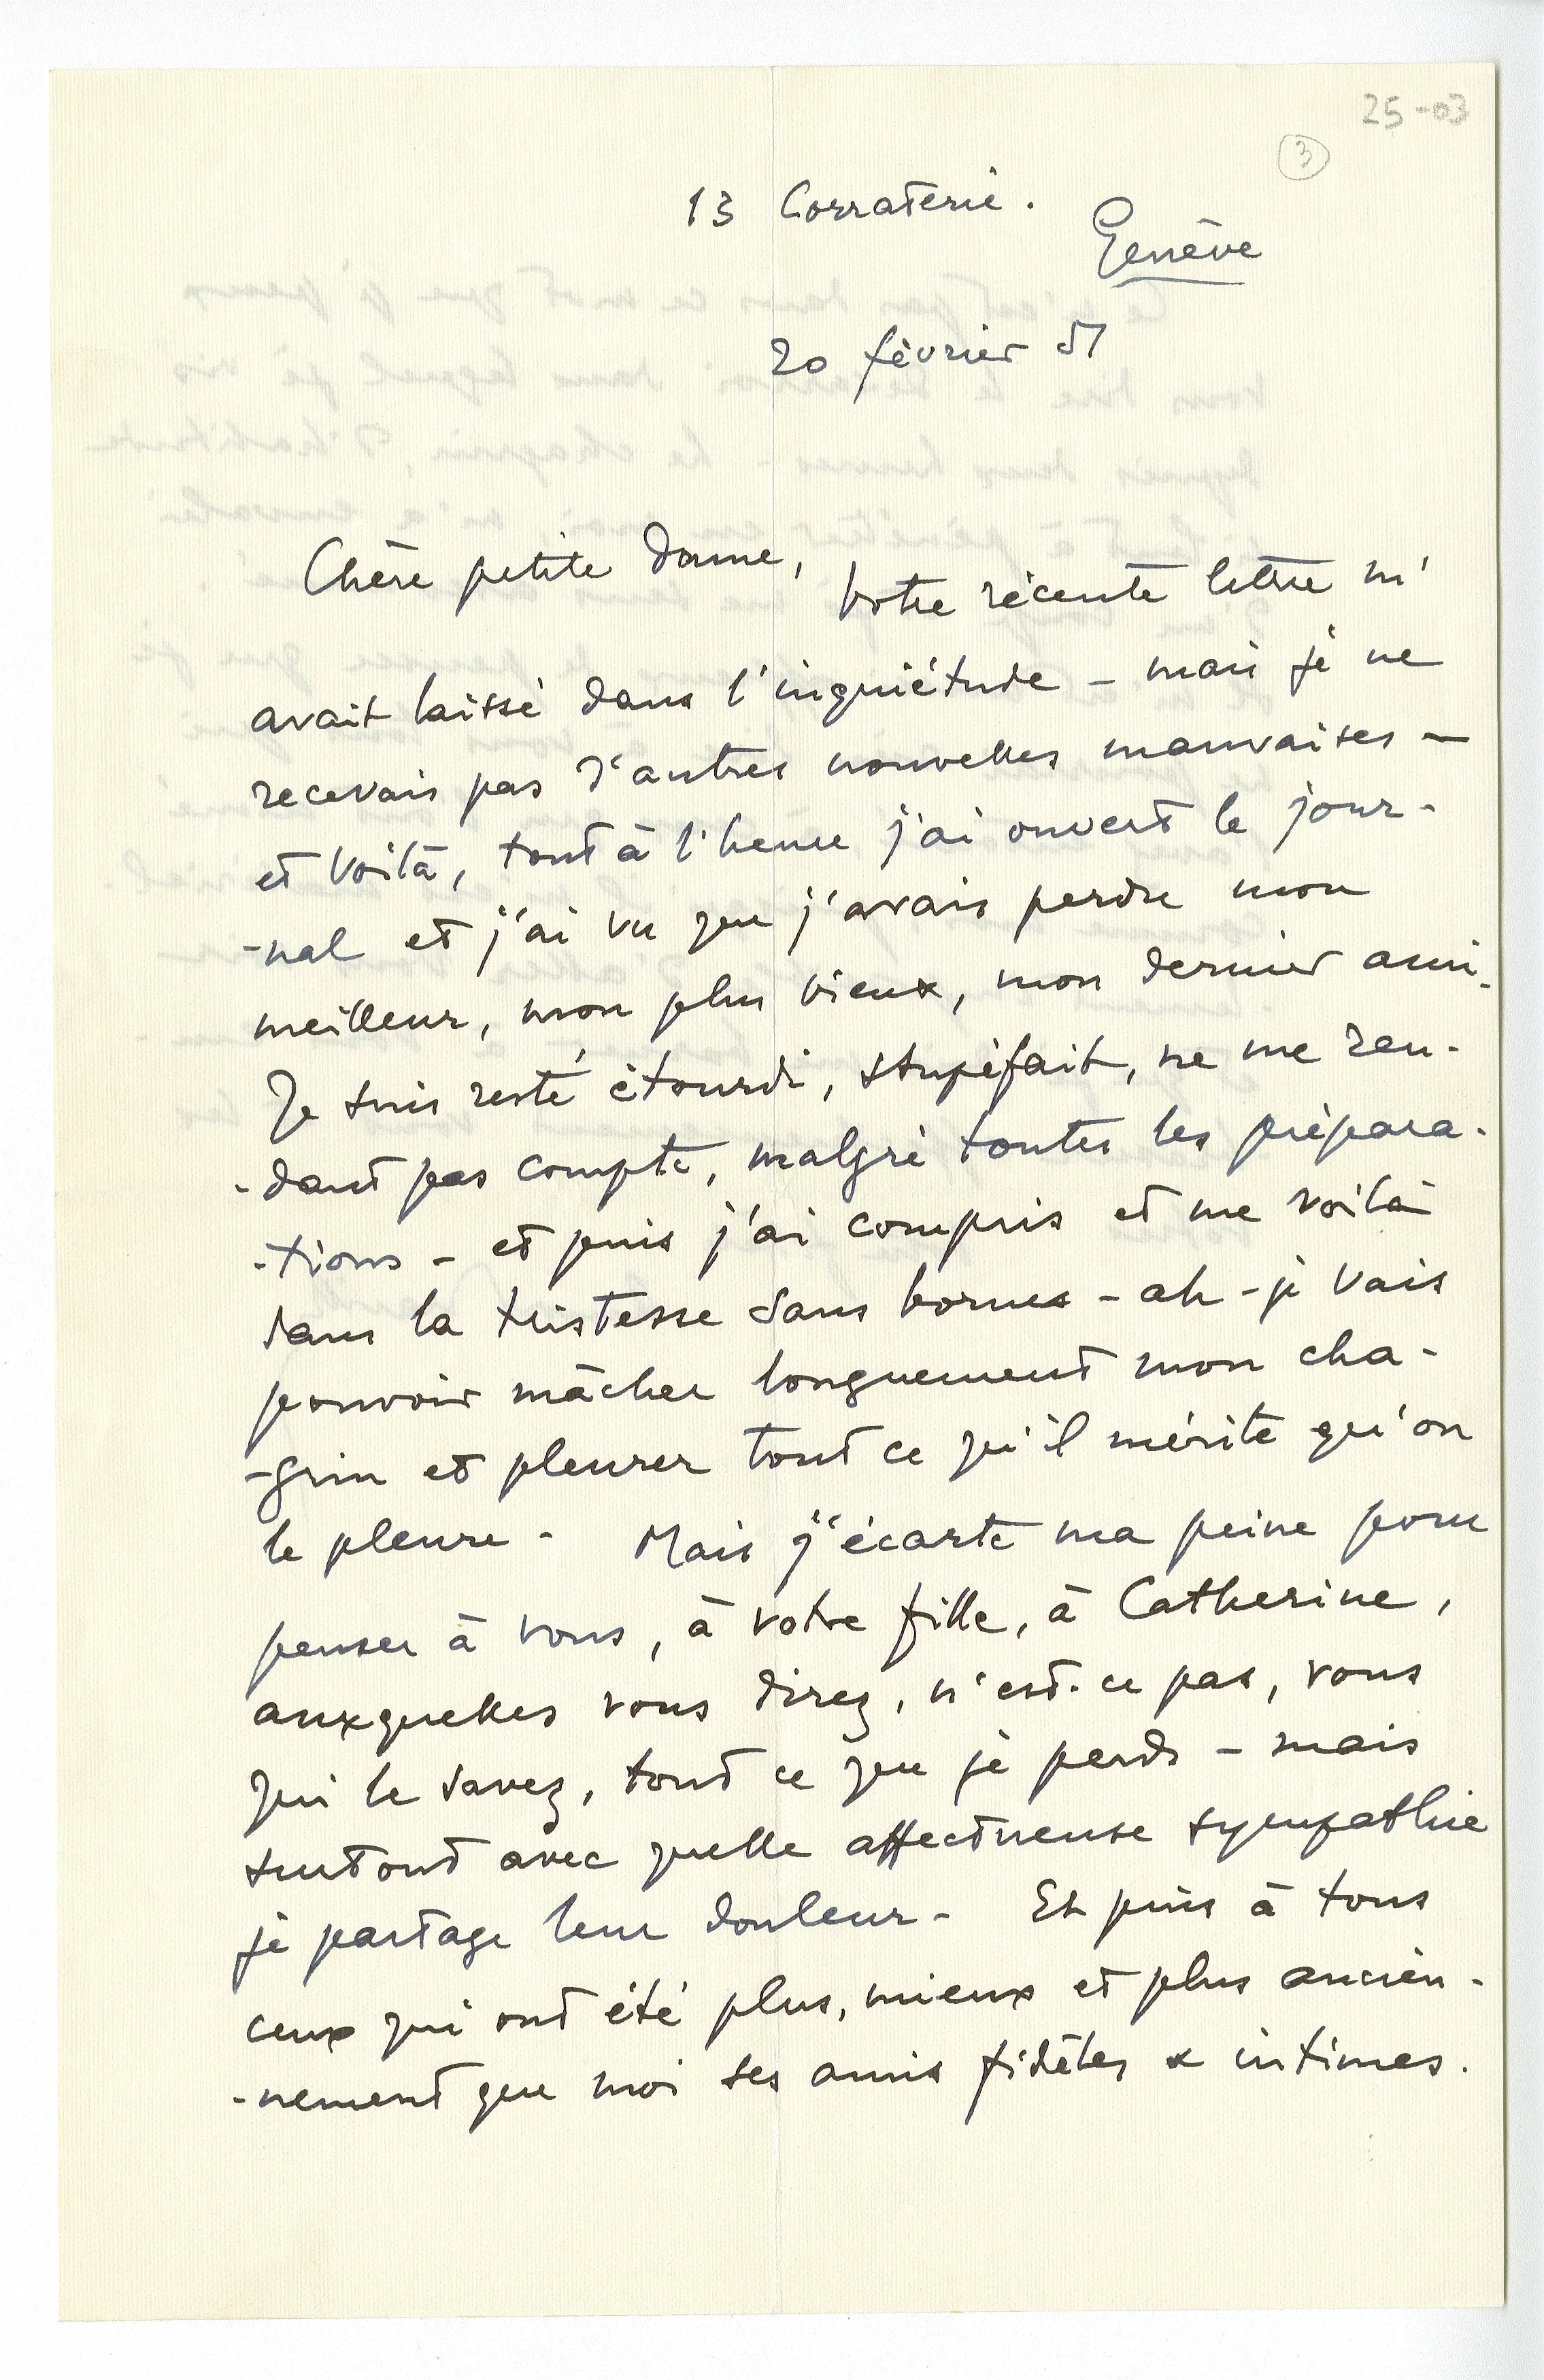 25-03
3
13 Corraterie.
Genève
20 février 51
Chère petite Dame,
Votre récente lettre m'
avait laissé dans l'inquiétude - mais je ne
recevais pas d'autres nouvelles mauvaises -
et voilà, tout à l'heure j'ai ouvert le jour-
-nal et j'ai vu que j'avais perdu mon
meilleur, mon plus vieux, mon dernier ami.
Je suis resté étourdi, stupéfait, ne me ren-
-dant pas compte, malgré toutes les prépara-
-tions - et puis j'ai compris et me voilà
dans la tristesse sans bornes - ah - je vais
pouvoir mâcher longuement mon cha-
-grin et pleurer tout ce qu'il mérite qu'on
le pleure - Mais j'écarte ma peine pour
penser à vous, à votre fille, à Catherine,
auxquelles vous direz, n'est-ce pas, vous
qui le savez, tout ce que je perds - mais
surtout avec quelle affectueuse sympathie
je partage leur douleur - Et puis à tous
ceux qui ont été plus, mieux et plus ancien-
-nement que moi ses amis fidèles & intimes.